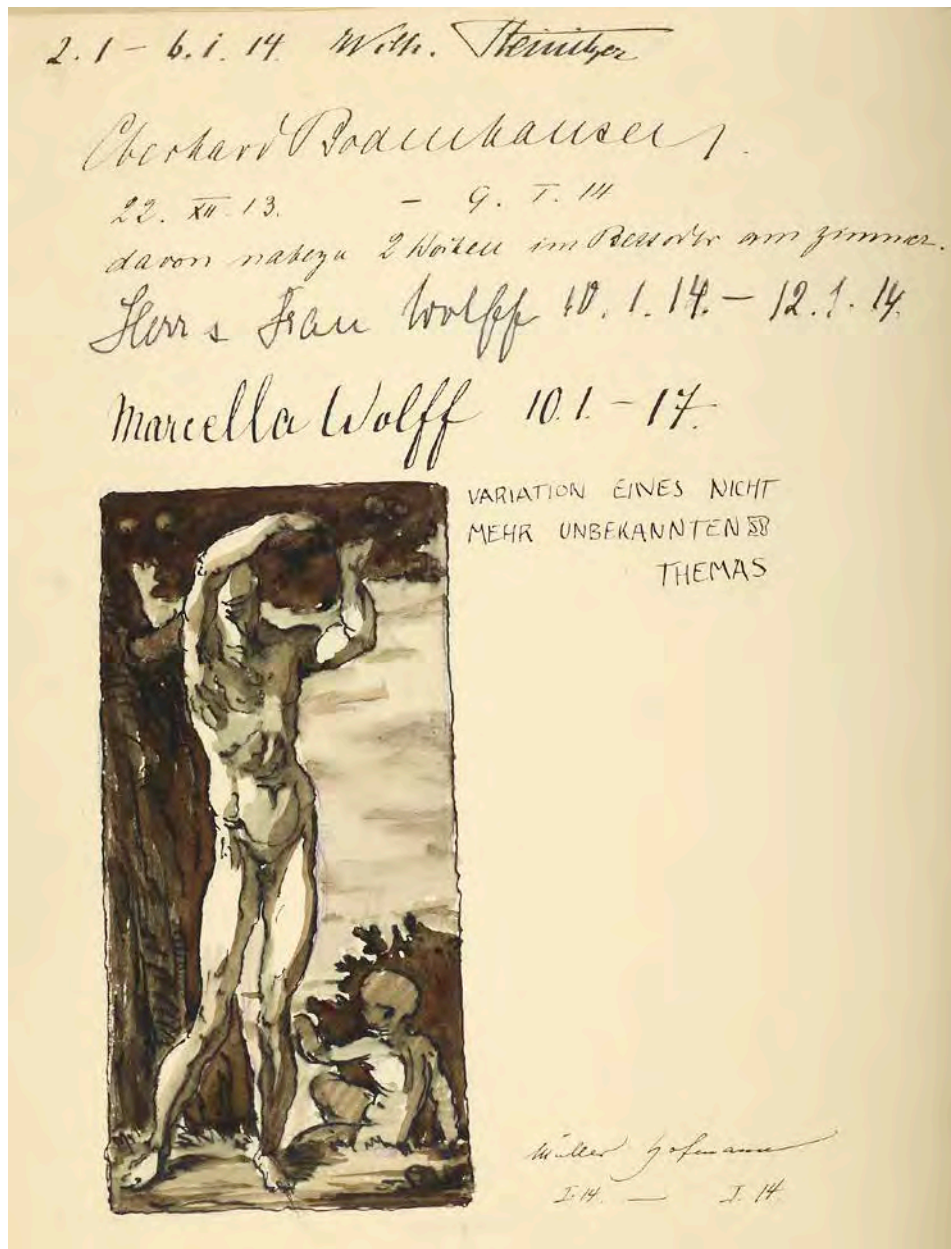 2. 1 – 6. i. 14. Wilh. Steinitzer
Eberhard Bodenhausen.
22. XII. 13. – 9. I. 14
davon nahezu 2 Wochen im Bett oder am Zimmer.
Herr & Frau Wolff 10. 1. 14. – 12. 1. 14.
Marcella Wolff 10. 1. – 17.
VARIATION EINES NICHT
MEHR UNBEKANNTEN
THEMAS
Müller Hofmann
I. 14. — I. 14.